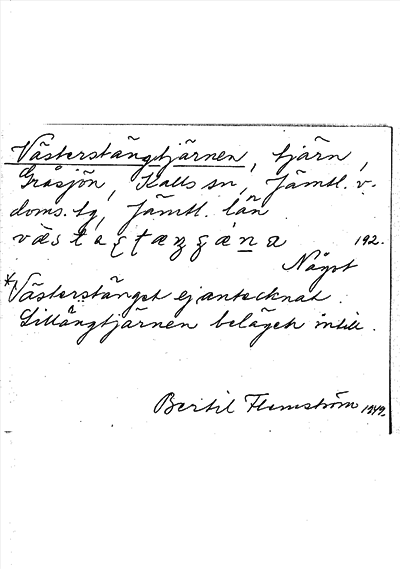 Västerstängtjärnen, tjärn,
Gråsjön, Kalls sn, Jämtl. v.
doms. tg, Jämtl. län
192.
Något
*Västerstänget ej antecknat.
Lillängtjärnen beläget intill.
Bertil Flemström 1949.